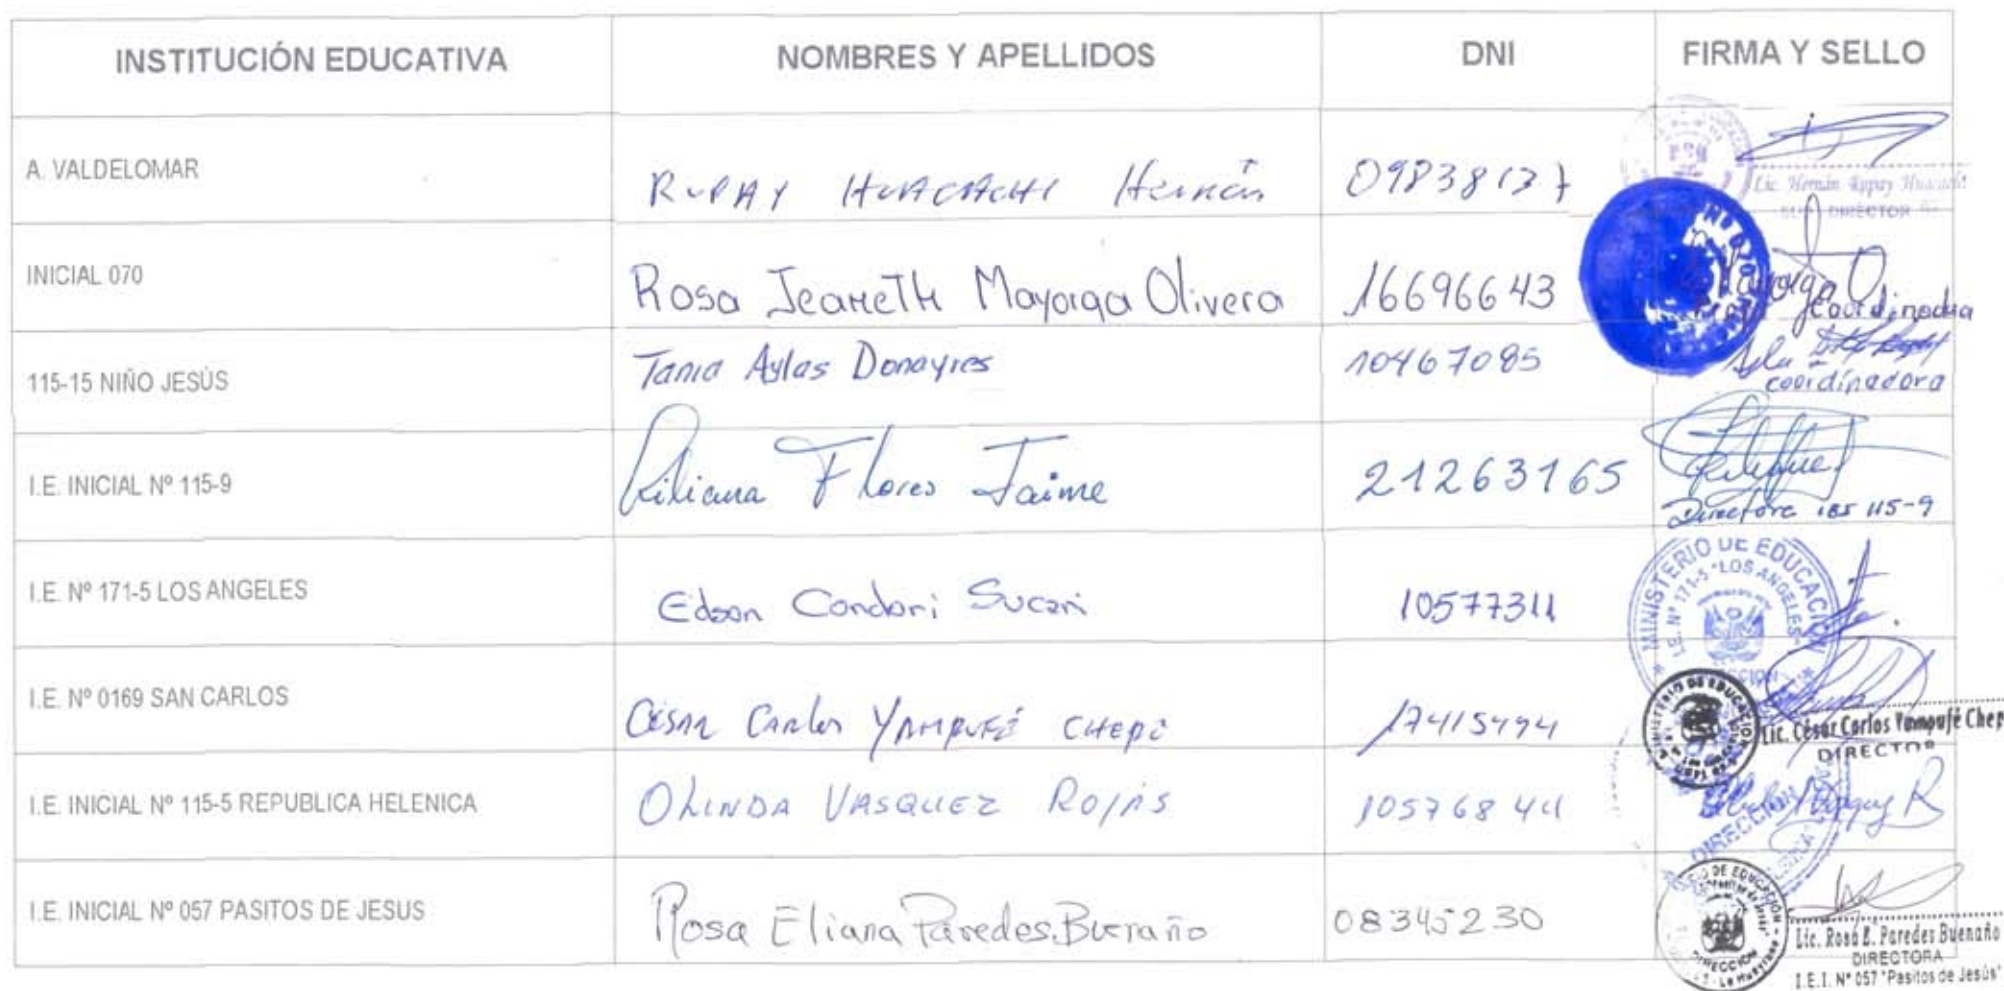 INSTITUCIÓN EDUCATIVA NOMBRES Y APELLIDOS DNI FIRMA Y SELLO
A. VALDELOMAR RUPAY HUACACHI Hernán 09838137
Lic. Hernán Rupay Huacachi
SUB DIRECTOR
INICIAL 070 Rosa Jeaneth Mayorga Olivera 16696643
Nº 070
Mayorga O
Coordinadora
115-15 NIÑO JESÚS Tania Aylas Donayres 10467085
coordinadora
I.E. INICIAL Nº 115-9 Liliana Flores Jaime 21263165
Directora 115-9
I.E. Nº 171-5 LOS ANGELES Edson Condori Sucari 10577311
MINISTERIO DE EDUCACIÓN
I.E. Nº 171-5 "LOS ANGELES"
I.E. Nº 0169 SAN CARLOS César Carlos YAMPUFÉ CHEPE
MINISTERIO DE EDUCACION
Lic. César Carlos Yampufé Chep
DIRECTOR
I.E. INICIAL Nº 115-5 REPUBLICA HELENICA OLINDA VASQUEZ ROJAS
DIRECCION
I.E. INICIAL Nº 057 PASITOS DE JESUS Rosa Eliana Paredes Buenaño 08345230
DIRECCION
Lic. Rosa E. Paredes Buenaño
DIRECTORA
I.E.I. Nº 057 "Pasitos de Jesús"